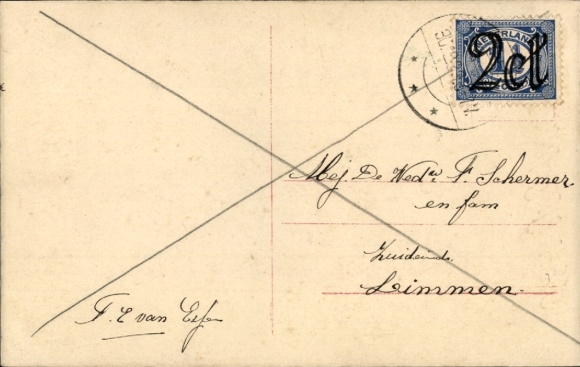 NEDERLAND
2ct
Mej. De Wed.e F. Schermer.
en fam
Zuideinde.
Limmen.
F. C van